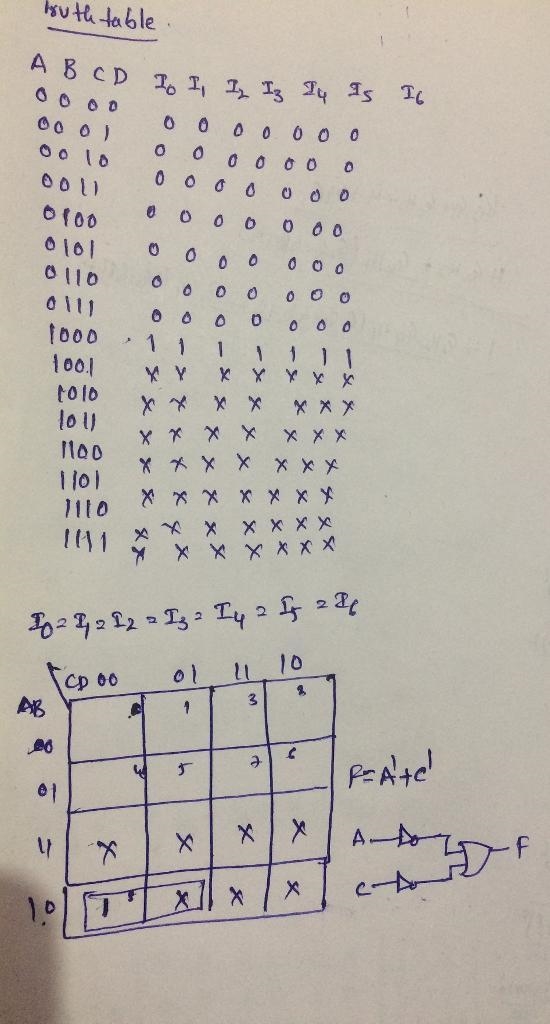 truth table.
A B C D I0 I1 I2 I3 I4 I5 I6
0 0 0 0 0 0 0 0 0 0 0
0 0 0 1 0 0 0 0 0 0 0
0 0 1 0 0 0 0 0 0 0 0
0 0 1 1 0 0 0 0 0 0 0
0 1 0 0 0 0 0 0 0 0 0
0 1 0 1 0 0 0 0 0 0 0
0 1 1 0 0 0 0 0 0 0 0
0 1 1 1 1 1 1 1 1 1 1
1 0 0 0 x x x x x x x
1 0 0 1 x x x x x x x
1 0 1 0 x x x x x x x
1 0 1 1 x x x x x x x
1 1 0 0 x x x x x x x
1 1 0 1 x x x x x x x
1 1 1 0 x x x x x x x
1 1 1 1
I0 = I1 = I2 = I3 = I4 = I5 = I6
CD 00 01 11 10
AB
00 1 3
01 4 5 7 6
F = A' + C'
11 x x x x
A F
C
10 1 8 x x x